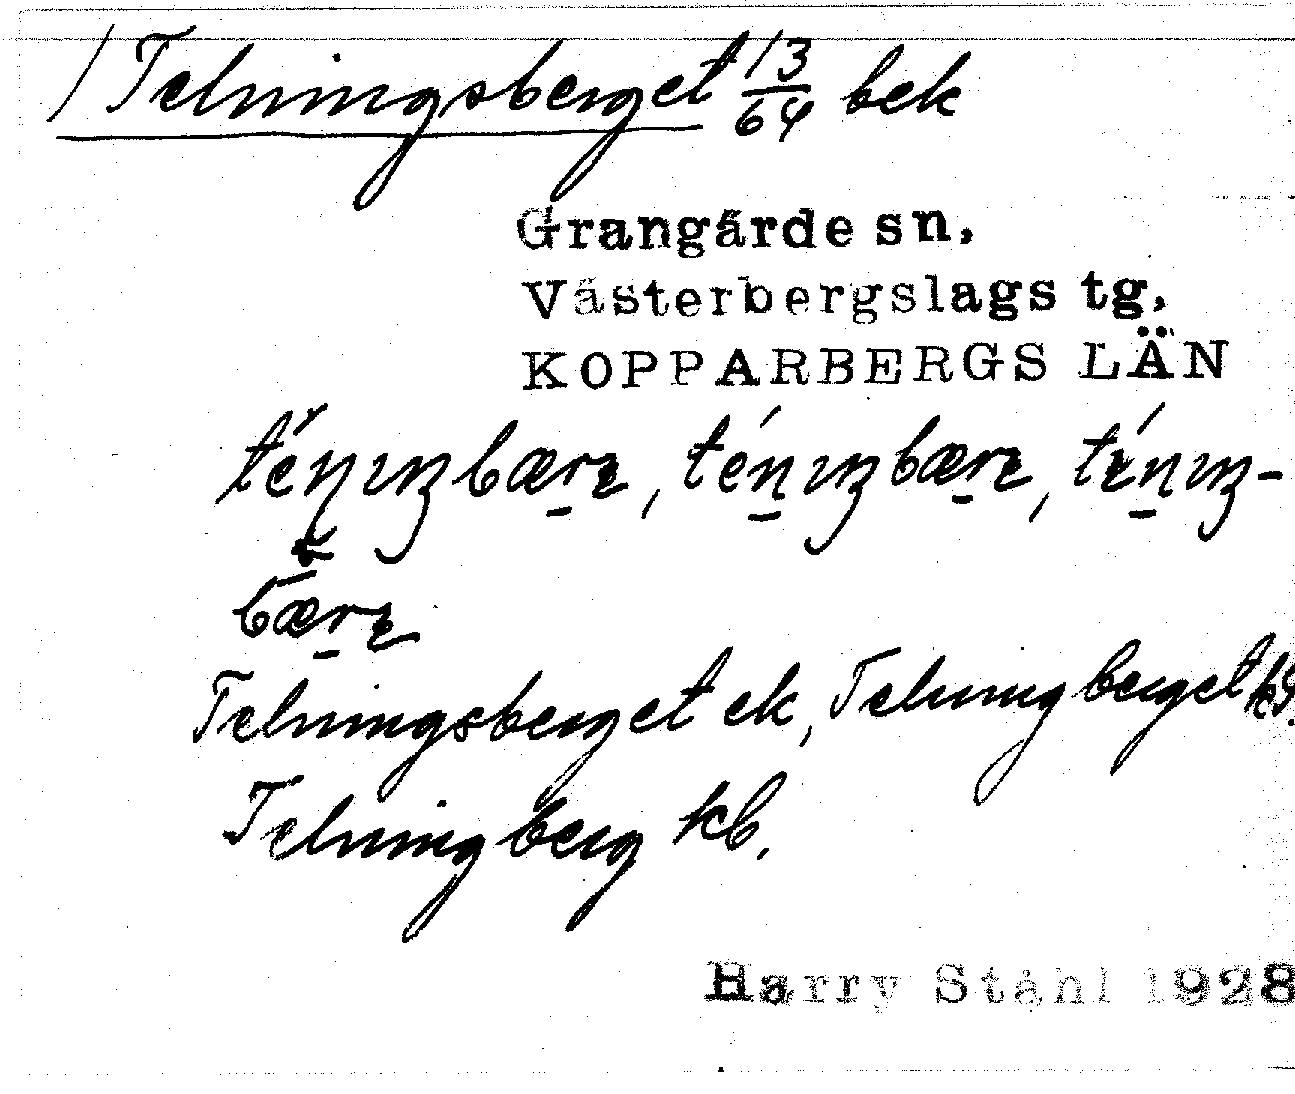 / Telningsberget 13/64 bek
Grangärde sn.
Västerbergslags tg.
KOPPARBERGS LÄN
Telningsberget ek, Telningberget kb.
Telningberg kb.
Harry Ståhl 1928